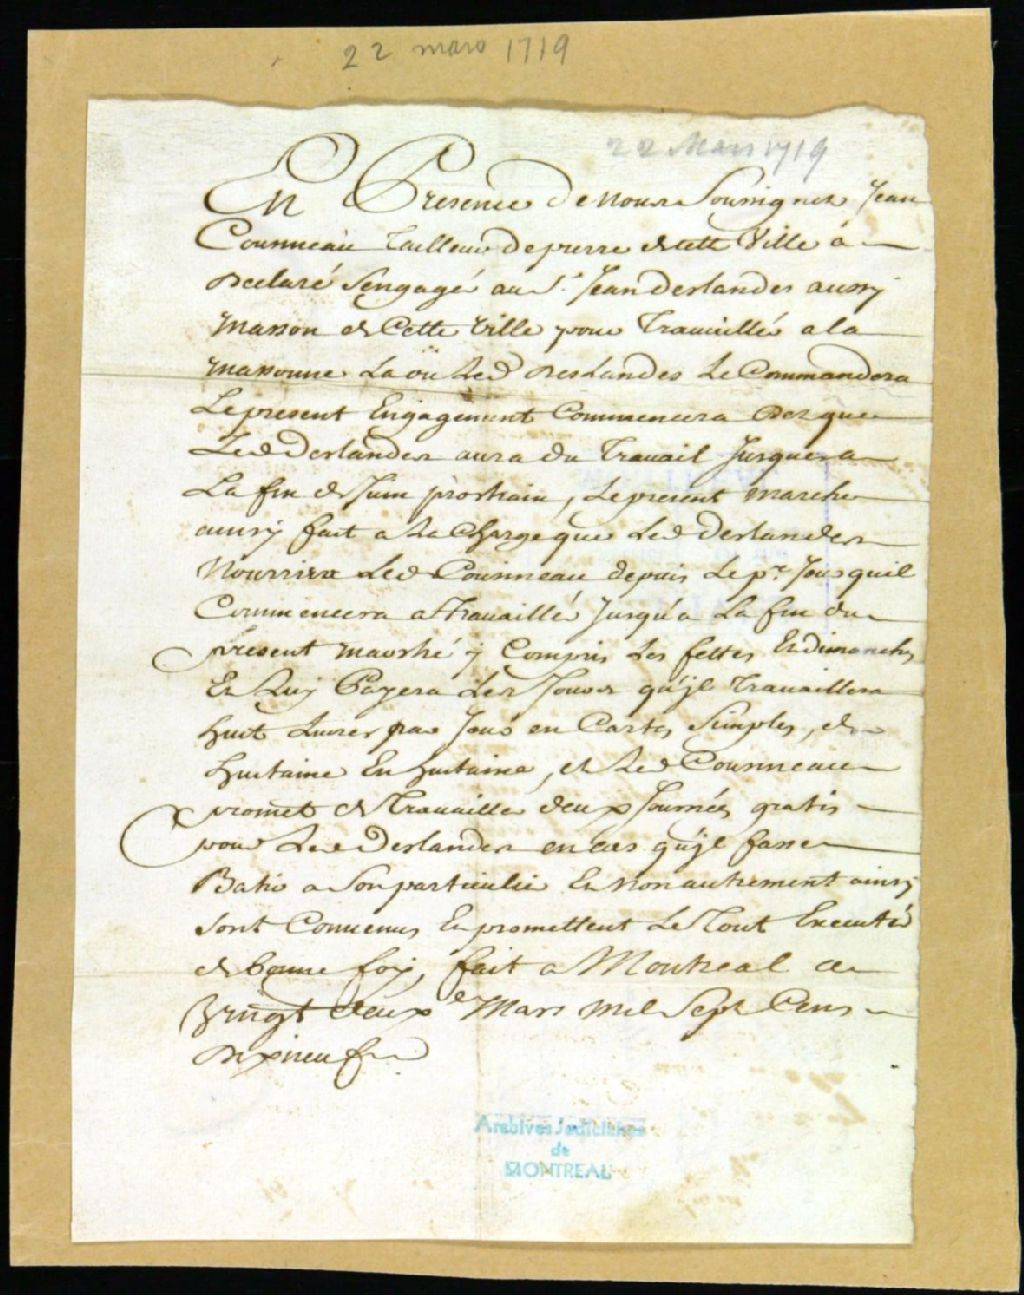 22 mars 1719
22 Mars 1719
En Presence de nous Soussignez Jean
Couuneau tailleur de pierre de cette Ville a
declaré s'engagé au Sr. Jean Deslandes aussy
masson de Cette Ville pour Travaillé a la
massonne La ou Led Deslandes Le Commandera
Le present Engagement Commencera des que
Led Deslandes aura du Travail Jusques a
La fin de Juin prochain, Le present marché
ainsy fait a La Charge que Led Deslandes
Nourrira Led Couuneau depuis Le pr. Jour quil
Commencera a travaillé Jusqu'a La fin du
present marché y Compris Les festes Et dimanches
Et Luy Payera Les Jours qu'jl Travaillera
huit Livres par Jour en Cartes Simples, de
huitaine En huitaine, et Led Couuneau
promet de Travailler deux Journées gratis
pour Led Deslandes en cas qu'jl fasse
Batir a Son particulier Et Non autrement ainsy
sont Convenus Et promettent Le Tout Executé
de bonne foy, fait a Montreal ce
Vingt deuxe Mars mil Sept Cens
dixneuf
Archives Judiciaires
de
MONTREAL